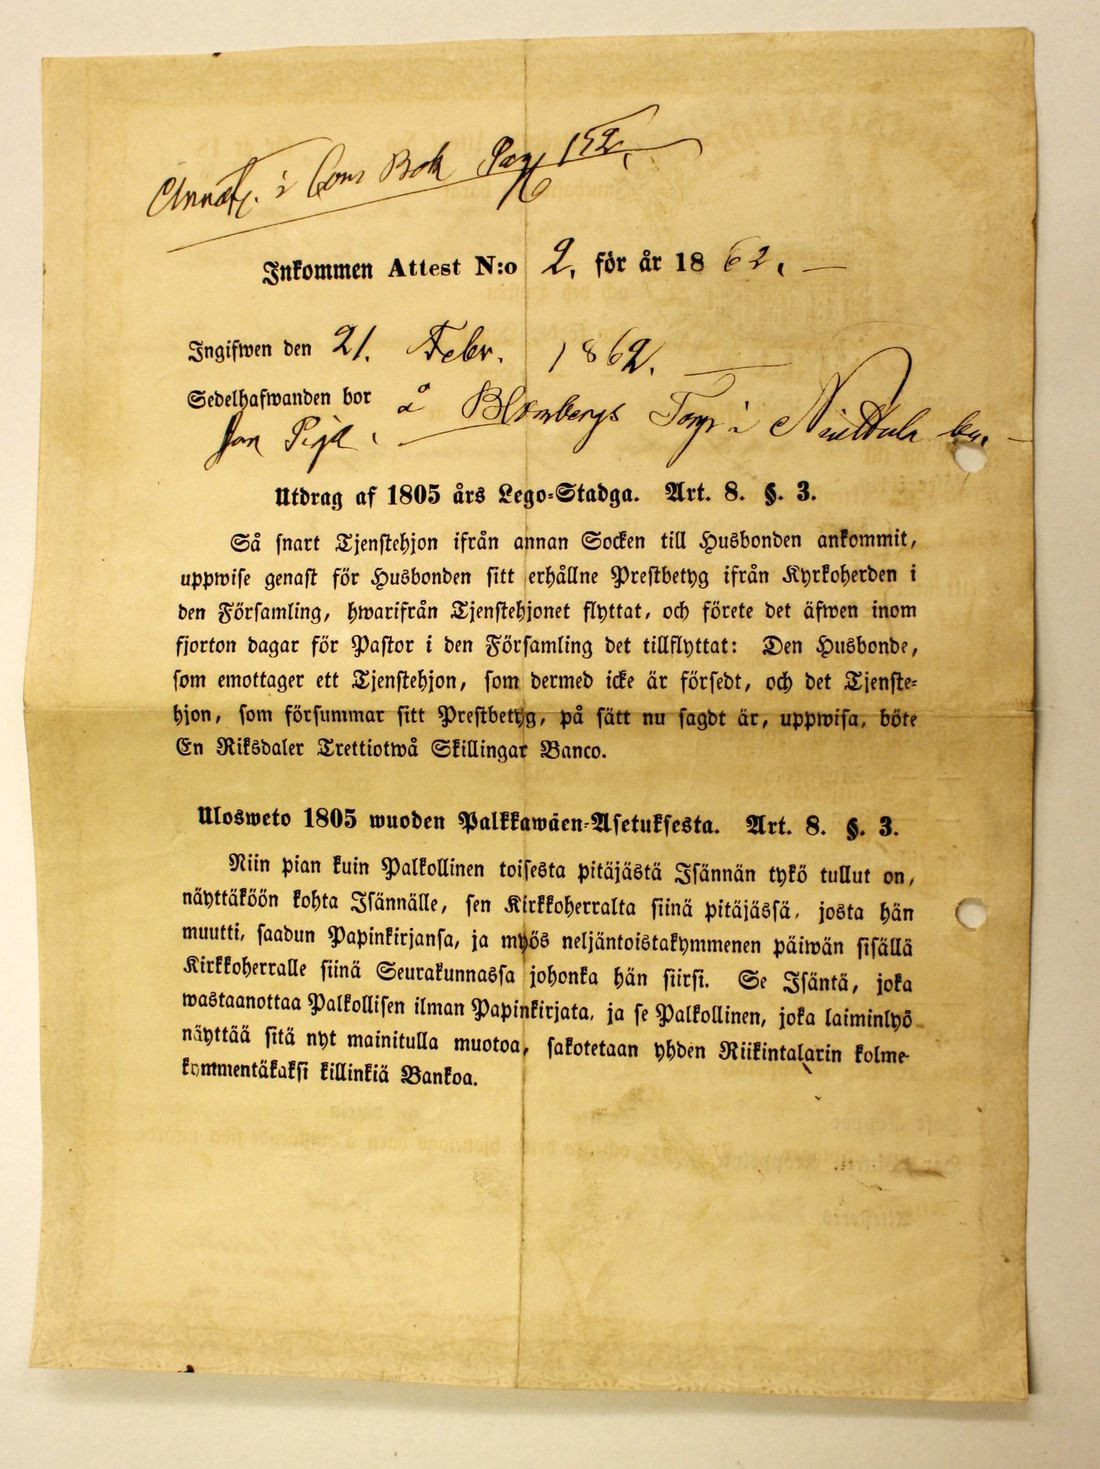 i Com Bok Pag 152.
Inkommen Attest N:o 2. för år 1862.
Ingifwen den 21. Febr. 1862.
Sedelhafwanden bor å Blombergs Torp i
som Piga
Utdrag af 1805 års Lego-Stadga. Art. 8. §. 3.
Så snart Tjenstehjon ifrån annan Socken till Husbonden ankommit,
uppwise genast för Husbonden sitt erhållne Prestbetyg ifrån Kyrkoherden i
den Församling, hwarifrån Tjenstehjonet flyttat, och förete det äfwen inom
fjorton dagar för Pastor i den Församling det tillflyttat: Den Husbonde,
som emottager ett Tjenstehjon, som dermed icke är försedt, och det Tjenste-
hjon, som försummar sitt Prestbetyg, på sätt nu sagdt är, uppwisa, böte
En Riksdaler Trettiotwå Skillingar Banco.
Ulosweto 1805 wuoden Palkkawäen-Asetuksesta. Art. 8. §. 3.
Niin pian kuin Palkollinen toisesta pitäjästä Isännän tykö tullut on,
näyttäköön kohta Isännälle, sen Kirkkoherralta siinä pitäjässä, josta hän
muutti, saadun Papinkirjansa, ja myös neljäntoistakymmenen päiwän sisällä
Kirkkoherralle siinä Seurakunnassa johonka hän siirsi. Se Isäntä, joka
wastaanottaa Palkollisen ilman Papinkirjata, ja se Palkollinen, joka laiminlyö
näyttää sitä nyt mainitulla muotoa, sakotetaan yhden Riikintalarin kolme-
kymmentäkaksi killinkiä Bankoa.